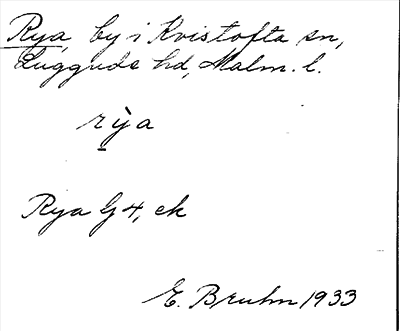 Rya, by i Kvistofta sn,
Luggude hd, Malm. l.
rỳa
Rya G 4, ek
E. Bruhn 1933